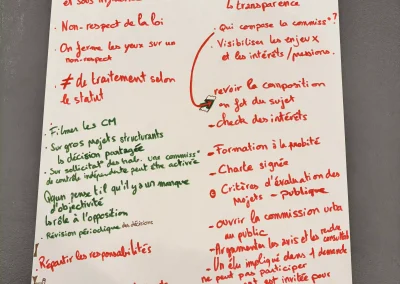 et sous
. Non-respect de la loi
. On ferme les yeux sur un
non-respect
. ≠ de traitement selon
le statut
. Filmer les CM
. Sur gros projets structurants
la décision partagée
. Sur sollicitat° des hab. une commiss°
de contrôle indépendante peut être activée
Qqun pense t'il qu'il y a un manque
d'objectivité
le rôle à l'opposition
. Révision périodique des décisions
. Répartir les responsabilités
↳ transparence
. Qui compose la commiss° ?
. Visibiliser les enjeux
et les intérêts/pressions.
revoir la composition
en fct du sujet
- check des intérêts
- Formation à la probité
- Charte signée
⊕ Critères d'évaluation des
projets - publique
- ouvrir la commission urba
au public
- Argumenter les avis et les rendre
- Un élu impliqué dans 1 demande
ne peut pas participer
est invitée pour